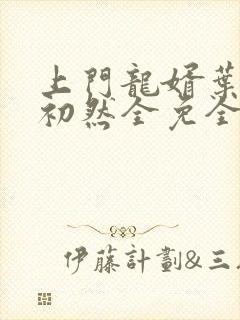 上門龍婿葉
初然全免全
伊藤計劃&三